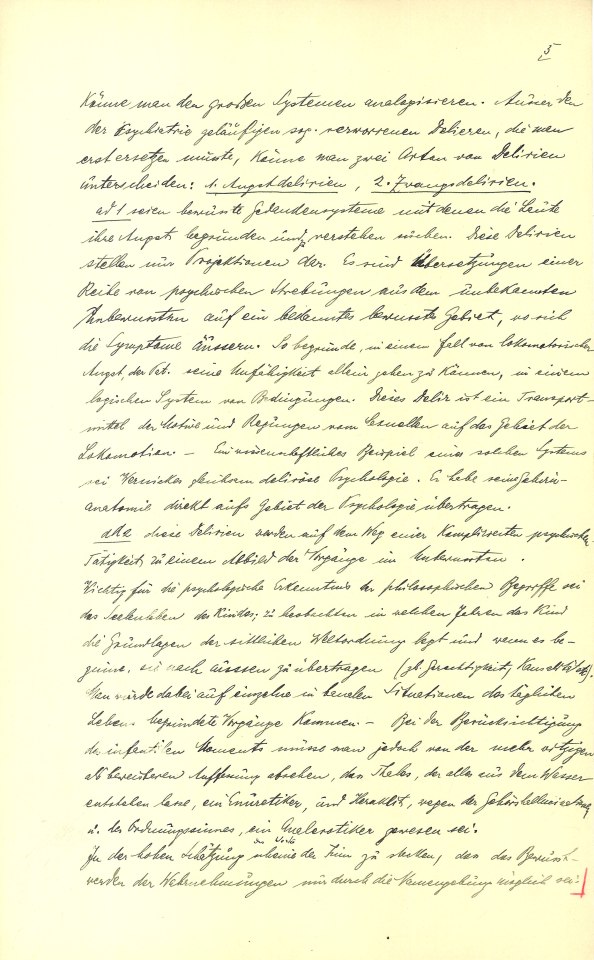 5
könne man den großen Systemen analogisieren. Ausser den
der Psychiatrie geläufigen sog. verworrenen Delirien, die man
erst ersetzen müsste, könne man zwei Arten von Delirien
unterscheiden: 1. Angstdelirien, 2. Zwangsdelirien.
ad 1 seien bewusste Gedankensysteme mit denen die Leute
ihre Angst begründen und verstehen suchen. Diese Delirien
stellen nur Projektionen dar. Es sind Übersetzungen einer
Reihe von psychischen Strebungen aus dem unbekannten
Unbewussten auf ein bekanntes bewusstes Gebiet, wo sich
die Symptome äussern. So begründe, in einem Fall von lokomotorischer
Angst, der Pat. seine Unfähigkeit allein gehen zu können, in einem
logischen System von Bedingungen. Dieses Delir ist ein Transport-
mittel der Motive und Regungen vom Sexuellen auf das Gebiet der
Lokomotion. – Ein wissenschaftliches Beispiel eines solchen Systems
sei Wernickes gleichsam deliröse Psychologie. Er habe seine Gehirn-
anatomie direkt aufs Gebiet der Psychologie übertragen.
ad 2 diese Delirien werden auf dem Weg einer komplizierten psychischen
Tätigkeit zu einem Abbild der Vorgänge im Unbewussten.
Wichtig für die psychologische Erkenntnis der philosophischen Begriffe sei
das Seelenleben des Kindes; zu beobachten in welchen Jahren das Kind
die Grundlagen der sittlichen Weltordnung legt und wenn es be-
ginne, sie nach aussen zu übertragen (zb. Gerechtigkeit,
Man würde dabei auf einzelne in banalen Situationen des täglichen
Leben begründete Vorgänge kommen. – Bei der Berücksichtigung
des infantilen Moments müsse man jedoch von der mehr witzigen
als beweisbaren Auffassung absehen, dass Thales, der alles aus dem Wasser
entstehen lasse, ein Enuretiker, und Heraklit, wegen der
u. des Ordnungssinnes, ein Analerotiker gewesen sei.
In der hohen Schätzung des Worts scheine der Sinn zu stecken, dass das Bewusst-
werden der Wahrnehmungen nur durch die Namengebung möglich sei.